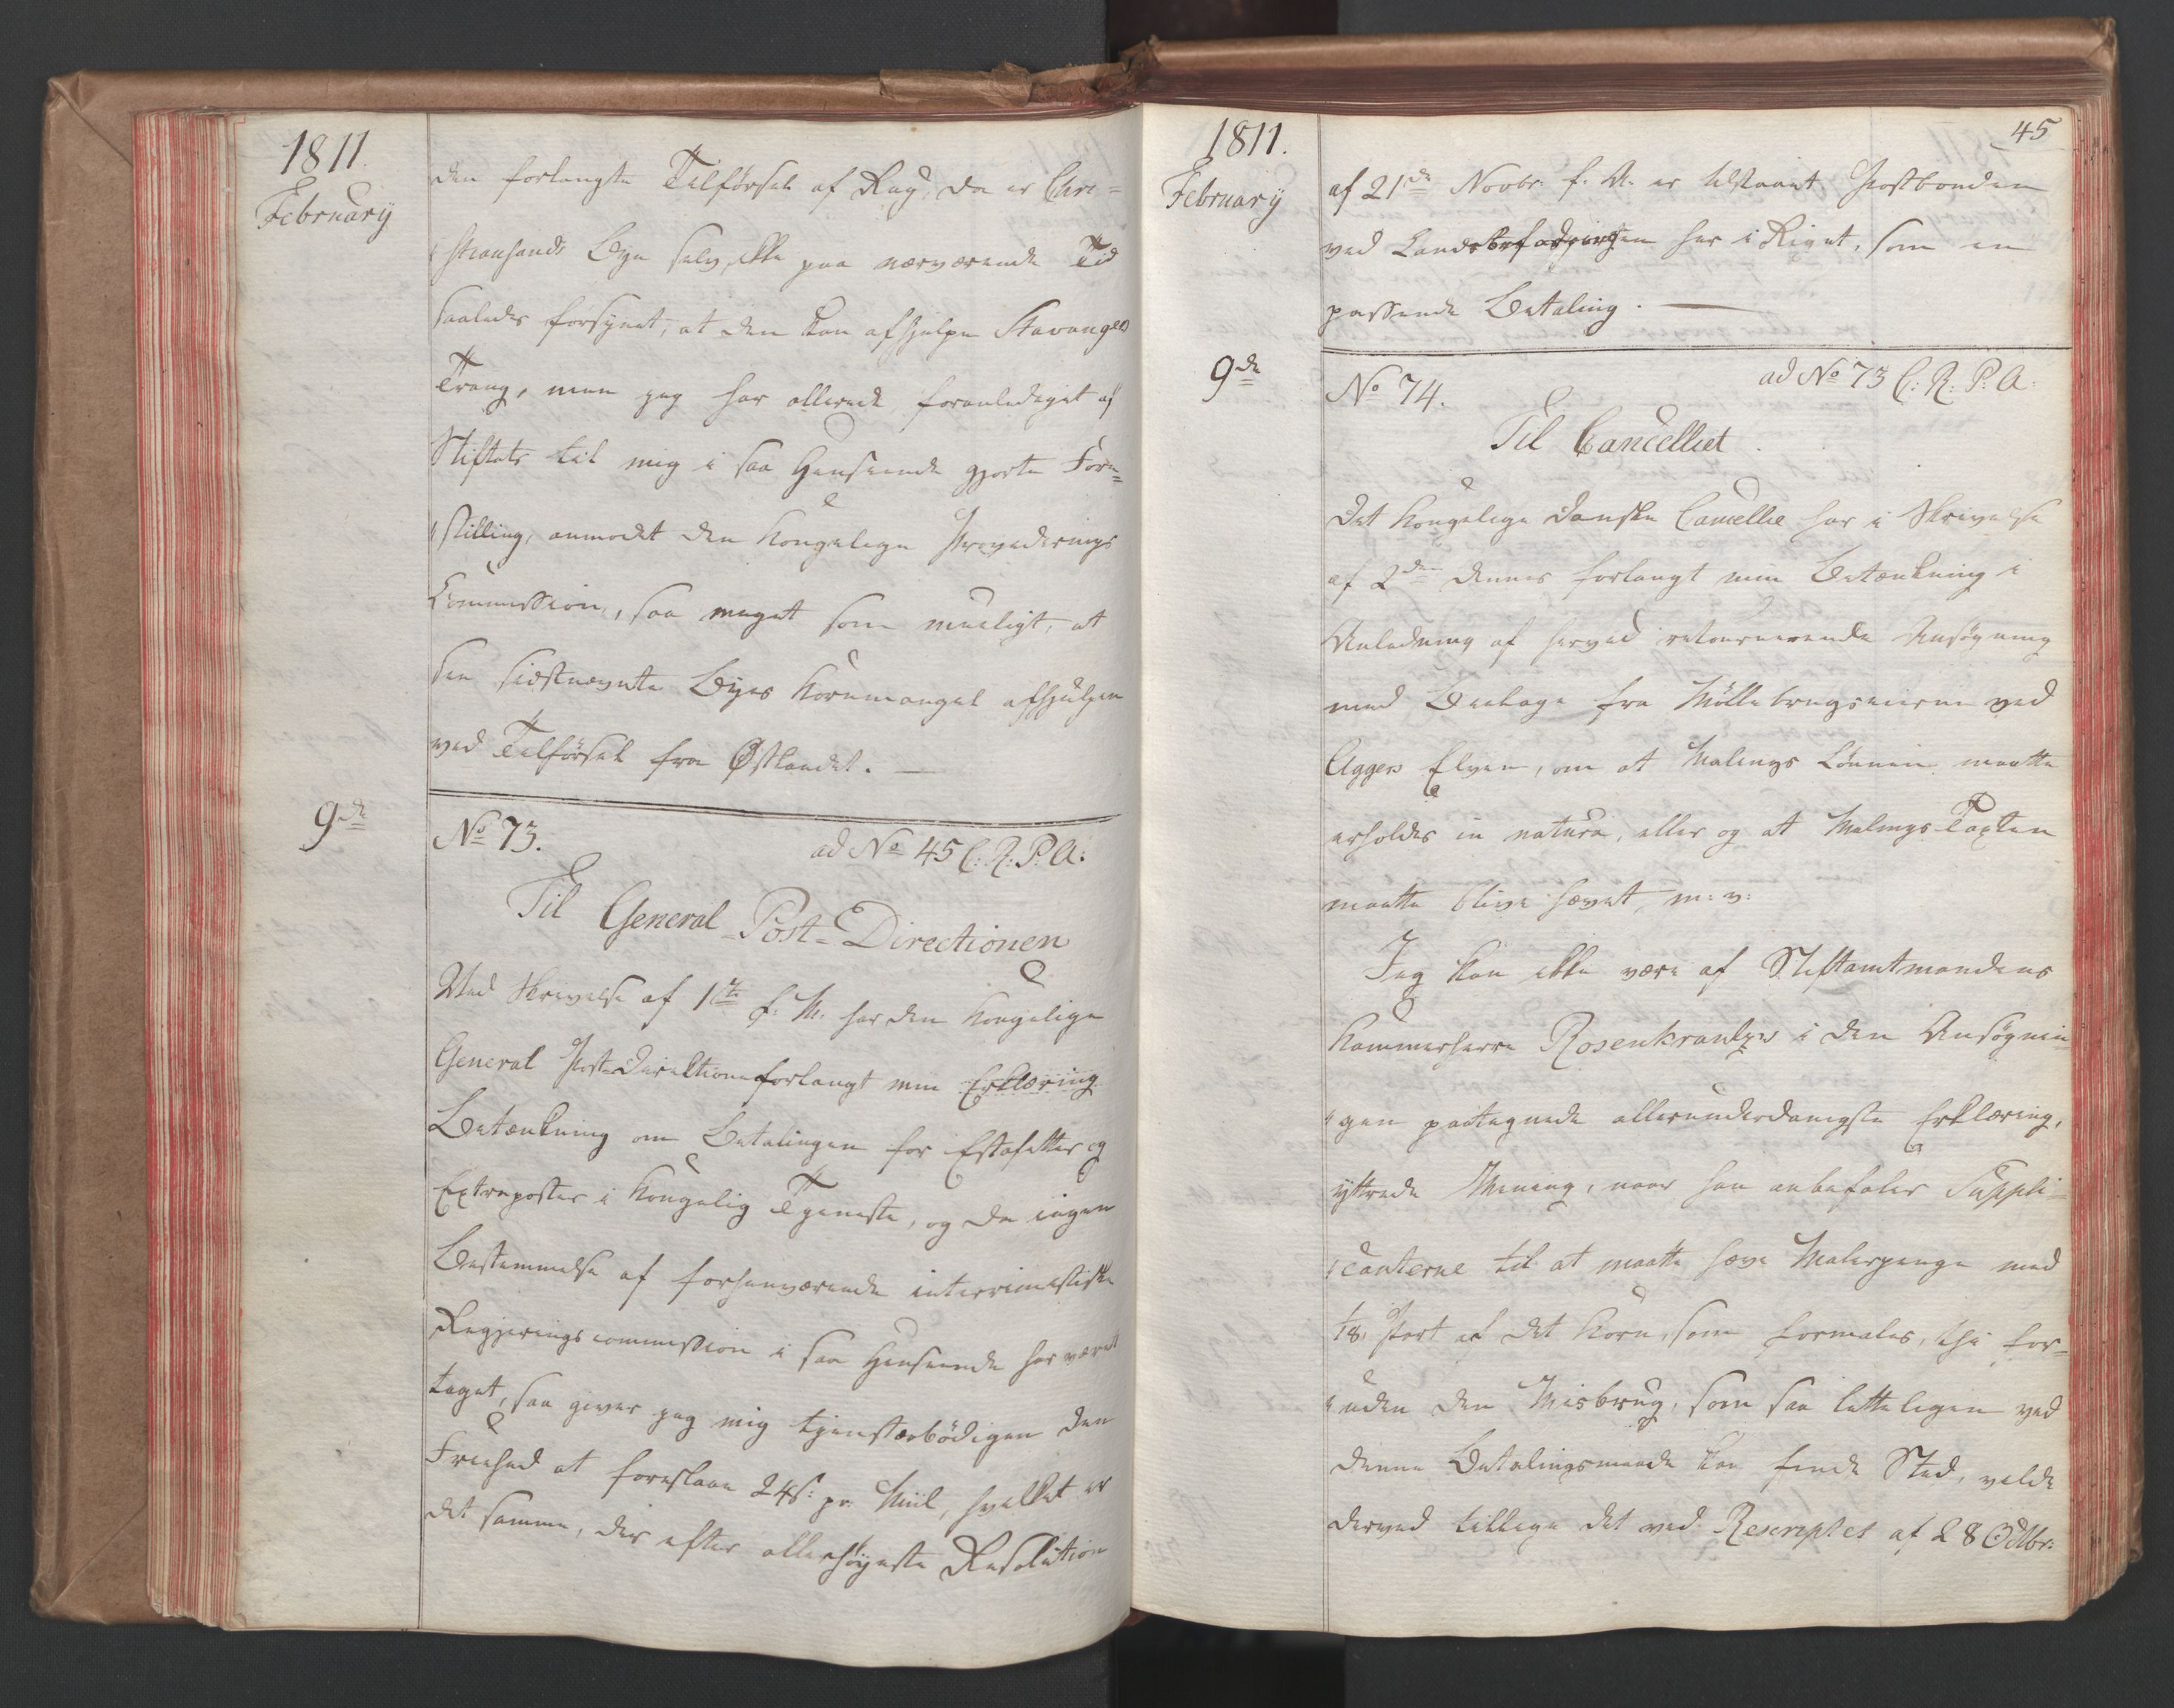 1811.
February
den forlangte Tilførsel af Rug, da er Chri=
"stiansands Bye selv, ikke paa nærværende Tid
saaledes forsynet, at den kan afhjelpe Stavangers
Trang, men jeg har allerede foranlediget af
Stiftets til mig i saa Henseende gjorte Fore=
"stilling, anmodet den Kongelige Provederings
Commission, saa meget som mueligt, at
see sidstnævnte Byes Kornmangel afhjulpen
ved Tilførsel fra Østlandet. —
9de
No 73.
ad No 45 C: R: P: A:
Til General-Post-Directionen
Ved Skrivelse af 1ste f: M. har den Kongelige
General Post-Direktion forlangt min Erklæring
Betænkning om Betalingen for Estafetter og
Extraposter i Kongelig Tjeneste, og da ingen
Bestemmelse af forhenværende interimistiske
Regjeringscommission i saa Henseende har været
taget, saa giver jeg mig tjenstærbødigen den
Friehed at foreslaae 24 s: pr: Miil, hvilket er
det samme, der efter allerhøyeste Resolution
1811.
February
45
af 21de Novbr: f: A: er tilstaaet Postbonden
ved Landebefordringen her i Riget, som en
passende Betaling. —
9de
No 74.
ad No 73 C: R: P: A:
Til Cancelliet.
Det Kongelige danske Cancellie har i Skrivelse
af 2den dennes forlangt min Betænkning i
Anledning af herved retournerende Ansøgning
med Beelage fra Møllebrugseierne ved
Aggers Elven, om at Malings Lønnen maatte
erholdes in natura, eller og at Malings Taxten
maatte blive hævet, m: v:
Jeg kan ikke være af Stiftamtmandens
Kammerherre Rosenkrantzes i den Ansøgnin
"gen paategnede allerunderdanigste Erklæring,
yttrede Mening, naar han anbefaler Suppli=
"canterne til at maatte hæve Malerpenge med
1/18 Part af det Korn, som formales, thi for=
"uden den Misbrug, som saa letteligen ved
denne Betalingsmaade kan finde Sted, vilde
derved tillige det ved Rescriptet af 28 Octbr: